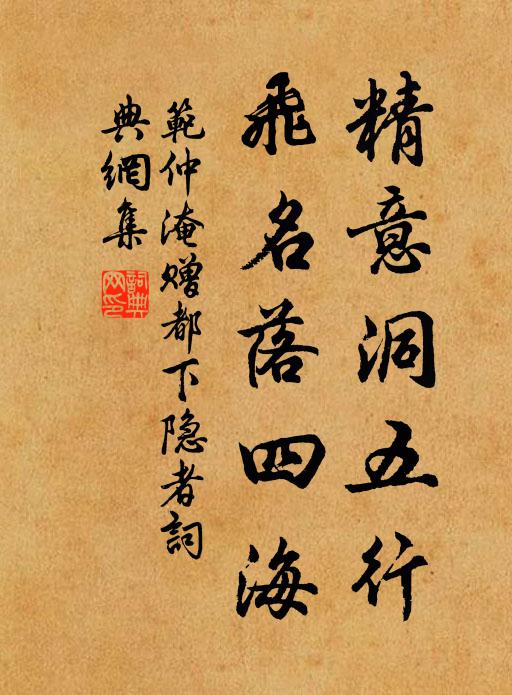 精意洞五行
飛名落四海
範仲淹赠都下隐者詞
典網集
詞典网印